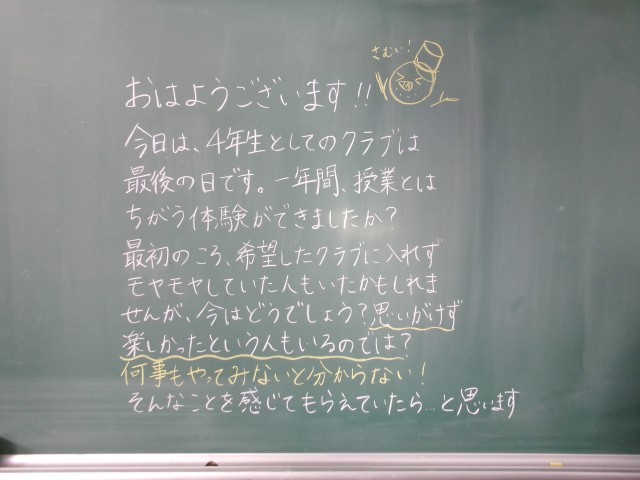 さむい！
おはようございます!!
今日は、4年生としてのクラブは
最後の日です。一年間、授業とは
ちがう体験ができましたか？
最初のころ、希望したクラブに入れず
モヤモヤしていた人もいたかもしれま
せんが、今はどうでしょう？思いがけず
楽しかったという人もいるのでは？
何事もやってみないと分からない！
そんなことを感じてもらえていたら…と思います